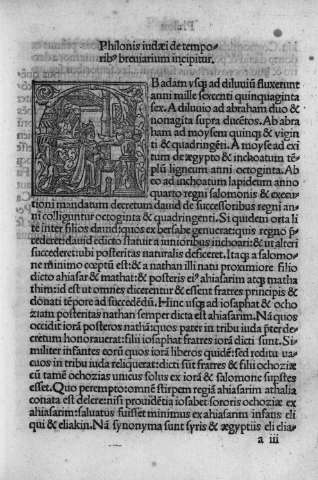 Philonis iudæi de tempo-
ribꝰ breuiarium incipitur.
B adam vsqꝫ ad diluuiũ fluxerunt
anni mille sexcenti quinquaginta
sex. A diluuio ad abraham duo &
nonagīta supra ducētos. Ab abra
ham ad moysen quinqꝫ & viginti
ti & quadringēti. A moyse ad exi
tum de ægypto & inchoatum tē-
plũ ligneum anni octoginta. Ab
eo ad inchoatum lapideum anno
quarto regni salomonis & execu
tioni mandatum decretum dauid de successoribus regni an-
ni colliguntur octoginta & quadringenti. Si quidem orta li
te inter filios dauid: quos ex bersabe genuerat: quis regno p̄
cederet: dauid edicto statuit a iunioribus inchoari: & ut alteri
succederet: ubi posteritas naturalis deficeret. Itaqꝫ a salomo-
ne minimo cœptũ est: & a nathan illi natu proximiore filio
dicto ahiasar & mathat: & posteris eiꝰ ahiasarim atqꝫ matha
thim: id est ut omnes dicerentur & essent fratres principis &
donati tēpore ad succedēdũ. Hinc usqꝫ ad iosaphat & ocho
ziam posteritas nathan semper dicta est ahiasarim. Nã quos
occidit iorã posteros nathã: quos pater in tribu iuda præter de-
cretum honorauerat: filii iosaphat fratres iorã dicti sunt. Si-
militer infantes eorũ quos iorã liberos quidē: sed reditu ua-
cuos in tribu iuda reliquerat: dicti sũt fratres & filii ochoziæ
cũ tamē ochozias unicus solus ex iorã & salomone supstes
esset. Quo perempto omnē stirpem regiã ahiasarim athalia
conata est delere: nisi prouidētia iosabet sororis ochoziæ ex
ahiasarim: saluatus fuisset minimus ex ahiasarim infans eli
qui & eliakin. Nã synonyma sunt syris & ægyptiis eli elia-
a iii